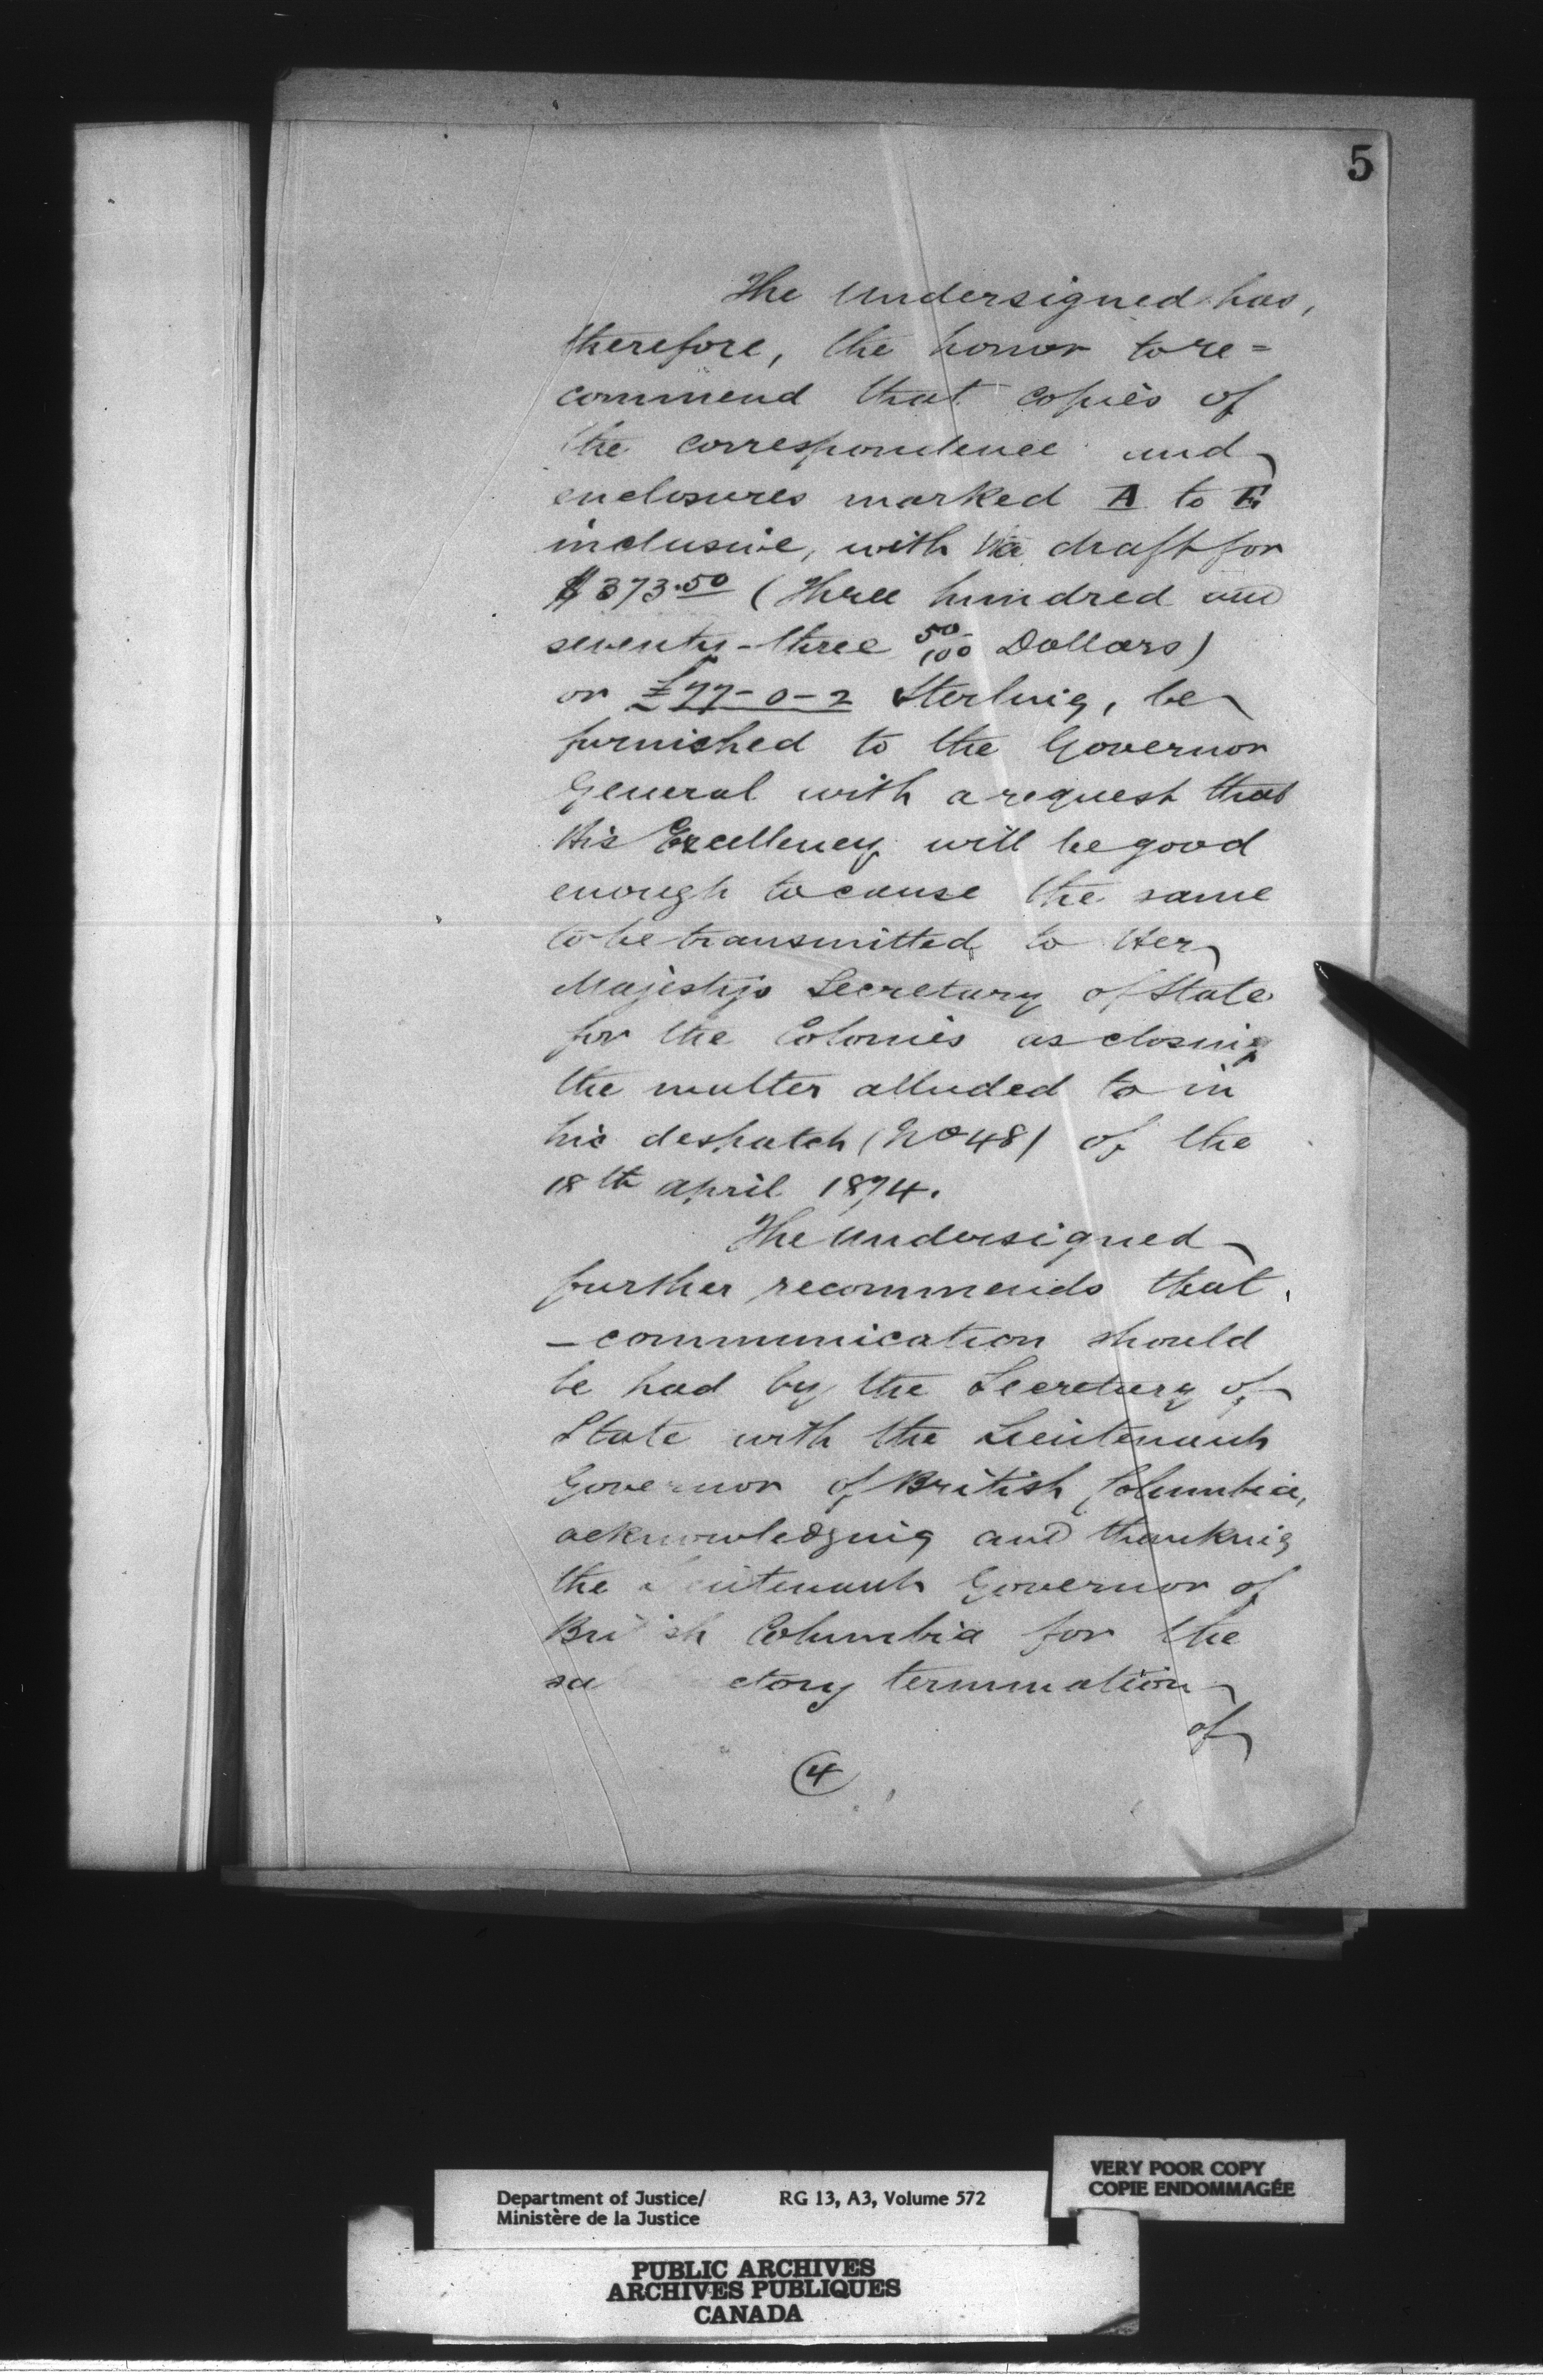 5
The Undersigned has,
therefore, the honor to re=
commend that copies of
the correspondence and
enclosures marked A to E
inclusive, with a draft for
$373.50 (Three hundred and
seventy-three 50/100 Dollars)
or £77-0-2 Sterling, be
furnished to the Governor
General with a request that
His Excellency will be good
enough to cause the same
to be transmitted, to Her
Majesty's Secretary of State
for the Colonies as closing
the matter alluded to in
his despatch (No 48) of the
18th April 1874.
The Undersigned
further recommends that
- communication should
be had by the Secretary of
State with the Lieutenant
Governor of British Columbia,
acknowledging and thanking
the Lieutenant Governor of
British Columbia for the
sa ctory termination
of
4
VERY POOR COPY
COPIE ENDOMMAGÉE
Department of Justice/ RG 13, A3, Volume 572
Ministère de la Justice
PUBLIC ARCHIVES
ARCHIVES PUBLIQUES
CANADA